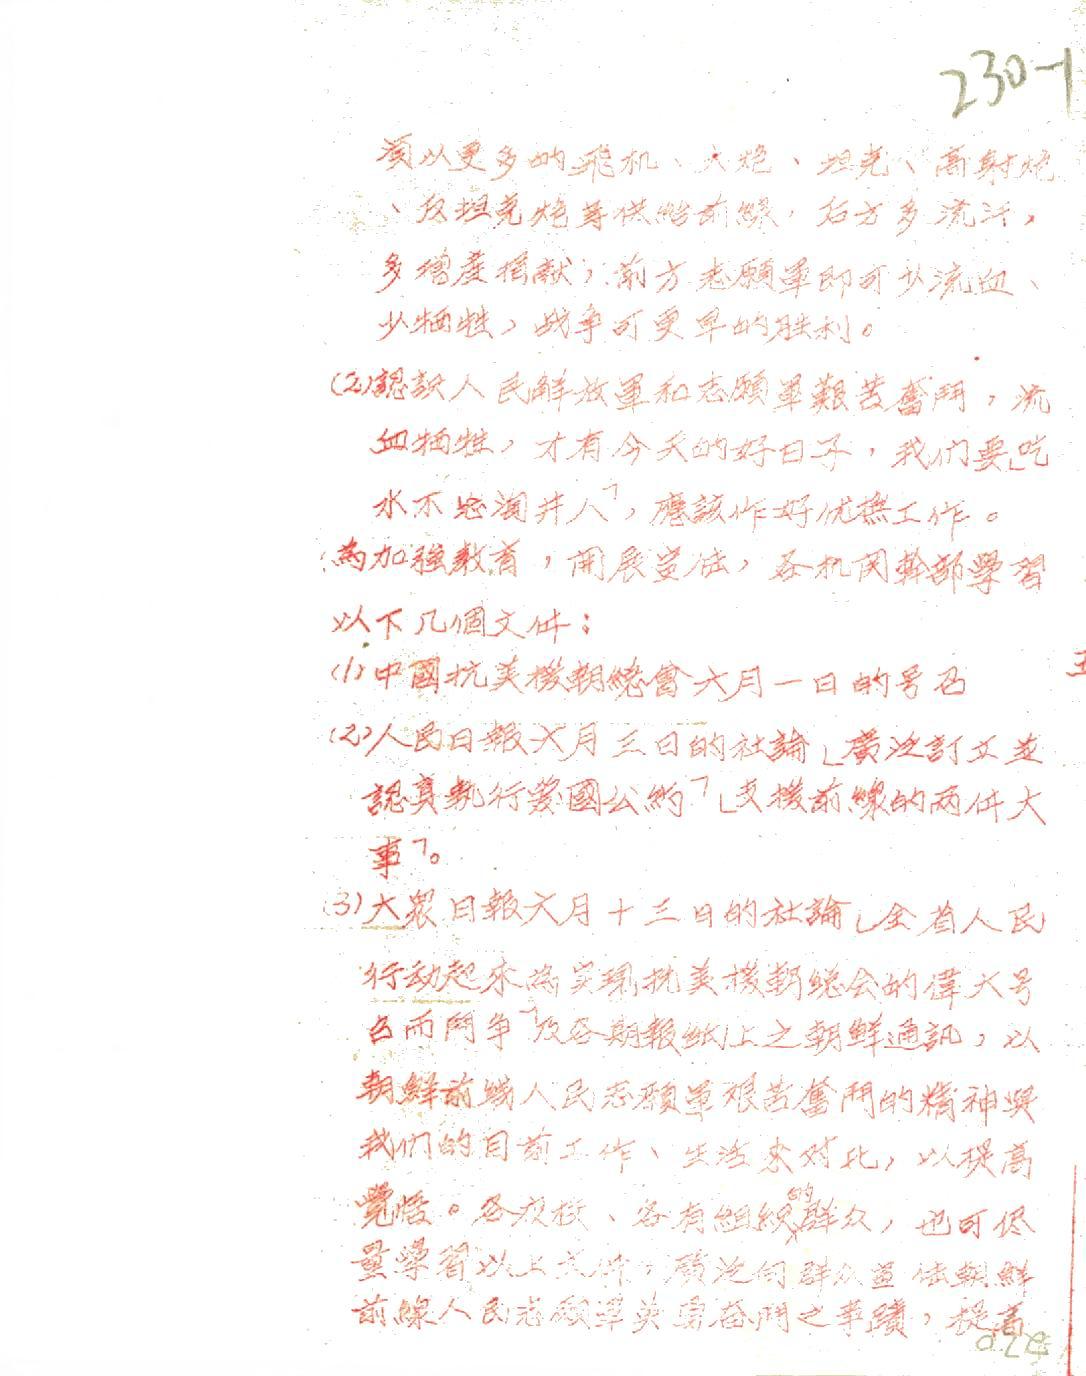 230-1
須以更多的飛机、大炮、坦克、高射炮
、反坦克炮等供给前線，后方多流汗，
多增產捐献，前方志願軍即可少流血、
少犧牲，战争可更早的胜利。
(2)認識人民解放軍和志願軍艱苦奮鬥，流
血犧牲，才有今天的好日子，我们要「吃
水不忘淘井人」，應該作好优撫工作。
為加強教育，開展宣传，各机関幹部學習
以下几個文件：
(1)中國抗美援朝總會六月一日的号召
(2)人民日報六月三日的社論「廣泛訂立並
認真執行愛國公約」「支援前線的两件大
事」。
(3)大衆日報六月十三日的社論「全省人民
行动起來為实現抗美援朝総会的偉大号
召而鬥争」及各期報纸上之朝鮮通訊，以
朝鮮前線人民志願軍艰苦奮鬥的精神與
我们的目前工作、生活來对比，以提高
覺悟。各夜校、各有組織的群众，也可侭
量學習以上文件，廣泛向群众宣传朝鮮
前線人民志願軍英勇奋鬥之事蹟，提高